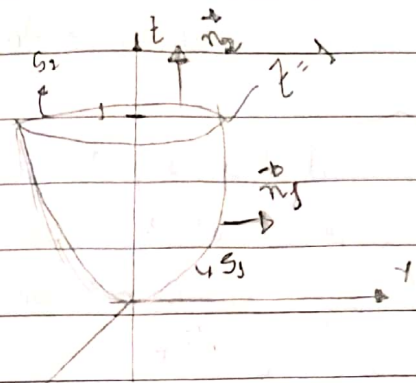 z
n₂
S₂
z=1
1
n₁
S₁
y